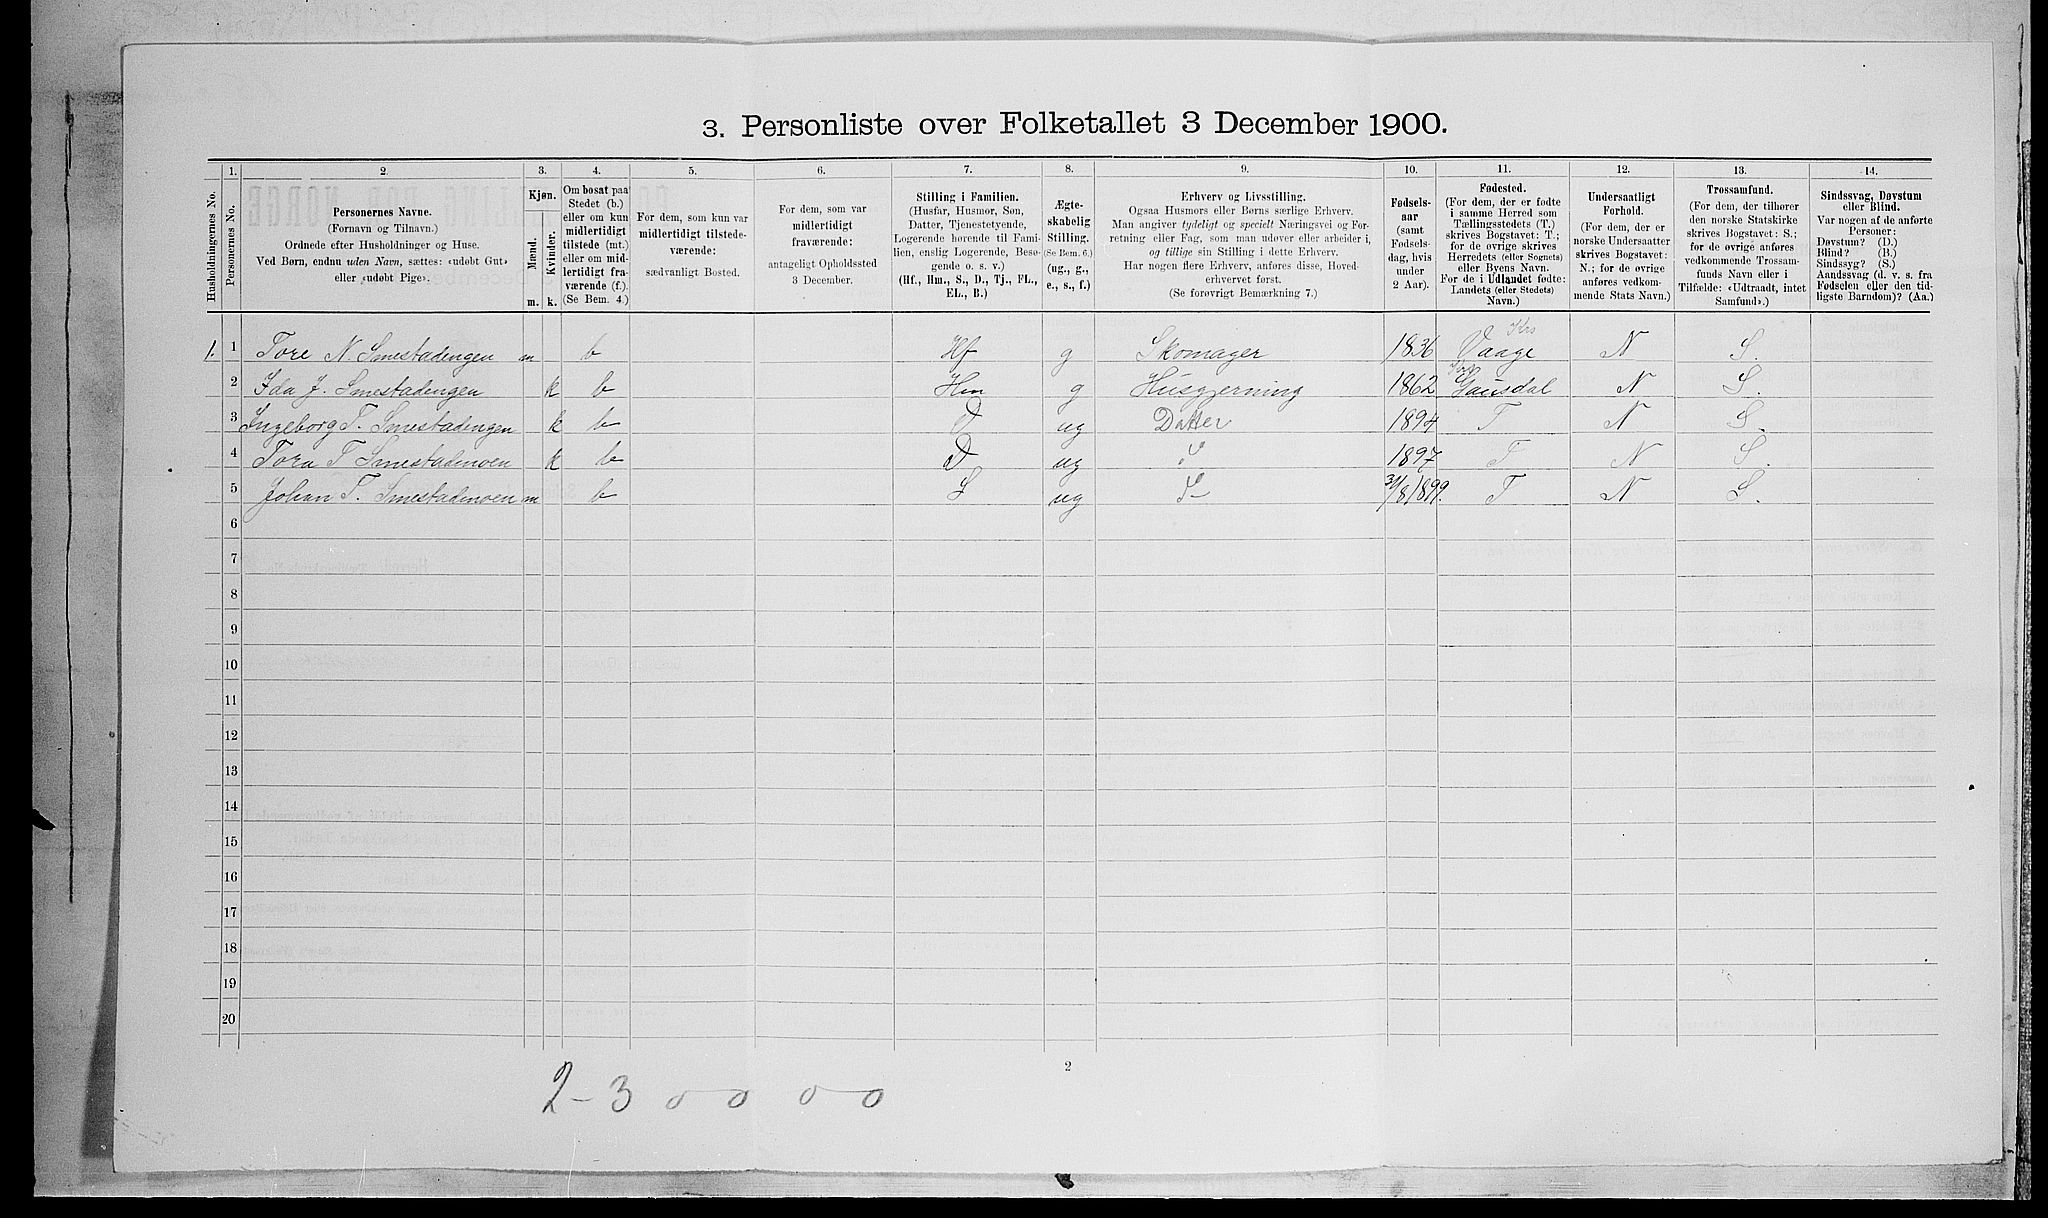 3. Personliste over Folketallet 3 December 1900.
Husholdningernes No.
1.
Personernes No.
2.
Personernes Navne.
(Fornavn og Tilnavn.)
Ordnede efter Husholdninger og Huse.
Ved Børn, endnu uden Navn, sættes: «udøbt Gut»
eller «udøbt Pige».
3.
Kjøn.
Mænd.
Kvinder.
m. k.
4.
Om bosat paa
Stedet (b.)
eller om kun
midlertidigt
tilstede (mt.)
eller om mid-
lertidigt fra-
værende (f.).
(Se Bem. 4.)
5.
For dem, som kun var
midlertidigt tilstede-
værende:
sædvanligt Bosted.
6.
For dem, som var
midlertidigt
fraværende:
antageligt Opholdssted
3 December.
7.
Stilling i Familien.
(Husfar, Husmor, Søn,
Datter, Tjenestetyende,
Logerende hørende til Fami-
lien, enslig Logerende, Besø-
gende o. s. v.)
(Hf., Hm., S., D., Tj., FL.,
EL., B.)
8.
Ægte-
skabelig
Stilling.
(Se Bem. 6.)
(ug., g.,
e., s., f.)
9.
Erhverv og Livsstilling.
Ogsaa Husmors eller Børns særlige Erhverv.
Man angiver tydeligt og specielt Næringsvei og For-
retning eller Fag, som man udøver eller arbeider i,
og tillige sin Stilling i dette Erhverv.
Har nogen flere Erhverv, anføres disse, Hoved-
erhvervet først.
(Se forøvrigt Bemærkning 7.)
10.
Fødsels-
aar
(samt
Fødsels-
dag, hvis
under
2 Aar).
11.
Fødested.
(For dem, der er fødte
i samme Herred som
Tællingsstedets (T.)
skrives Bogstavet: T.;
for de øvrige skrives
Herredets (eller Sognets)
eller Byens Navn.
For de i Udlandet fødte:
Landets (eller Stedets)
Navn.)
12.
Undersaatligt
Forhold.
(For dem, der er
norske Undersaatter
skrives Bogstavet:
N.; for de øvrige
anføres vedkom-
mende Stats Navn.)
13.
Trossamfund.
(For dem, der tilhører
den norske Statskirke
skrives Bogstavet: S.;
for de øvrige anføres
vedkommende Trossam-
funds Navn eller i
Tilfælde: «Udtraadt, intet
Samfund».)
14.
Sindssvag, Døvstum
eller Blind.
Var nogen af de anførte
Personer:
Døvstum? (D.)
Blind? (B.)
Sindssyg? (S.)
Aandssvag (d. v. s. fra
Fødselen eller den tid-
ligste Barndom)? (Aa.)
1. 1 Tore N. Smestadengen m b Hf g Skomager 1836 Krs Vaage N S.
2 Ida J. Smestadengen k b Hm g Husgjerning 1862 Krs Gausdal N S.
3 Ingeborg T. Smestadengen k b D ug Datter 1894 T N S.
4 Tora T Smestadmoen k b D ug 1897 T N S.
5 Johan T. Smestadmoen m b S ug 31/8 1899. T N S.
6
7
8
9
10
11
12
13
14
15
16
17
18
19
20
2
2 – 3 0 0 0 0